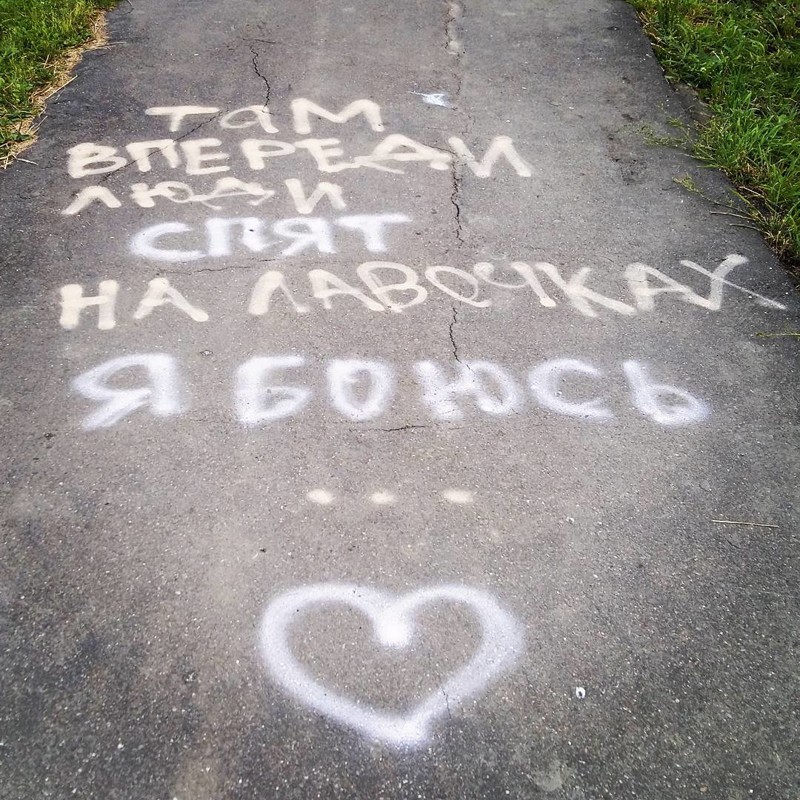 там
ВПЕРЕДИ
ЛЮДИ
СПЯТ
НА ЛАВОЧКАХ
Я БОЮСЬ
...